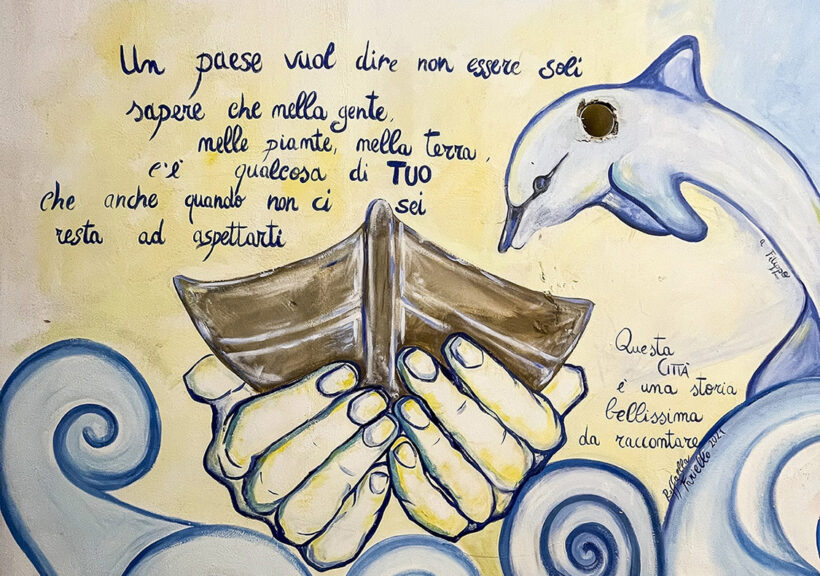 Un paese vuol dire non essere soli
sapere che nella gente,
nelle piante, nella terra,
c'è qualcosa di TUO
che anche quando non ci sei
resta ad aspettarti
a Filippo
Questa
CITTÀ
è una storia
bellissima
da raccontare
2021